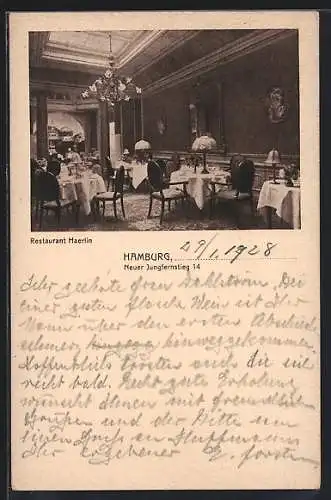 Restaurant Haerlin
HAMBURG, 29/1. 1928
Neuer Jungfernstieg 14
Sehr geehrte Frau Dahlström, Bei
einer guten Flasche Wein ist Ihr
Mann über den ersten Abschied
hinweggekommen.
Hoffentlich trösten auch Sie sich
recht bald. Recht gute Erholung
wünscht Ihnen mit freundlichen
Grüßen und der Bitte um
einen Gruß an Huffmanns
Ihr ergebener